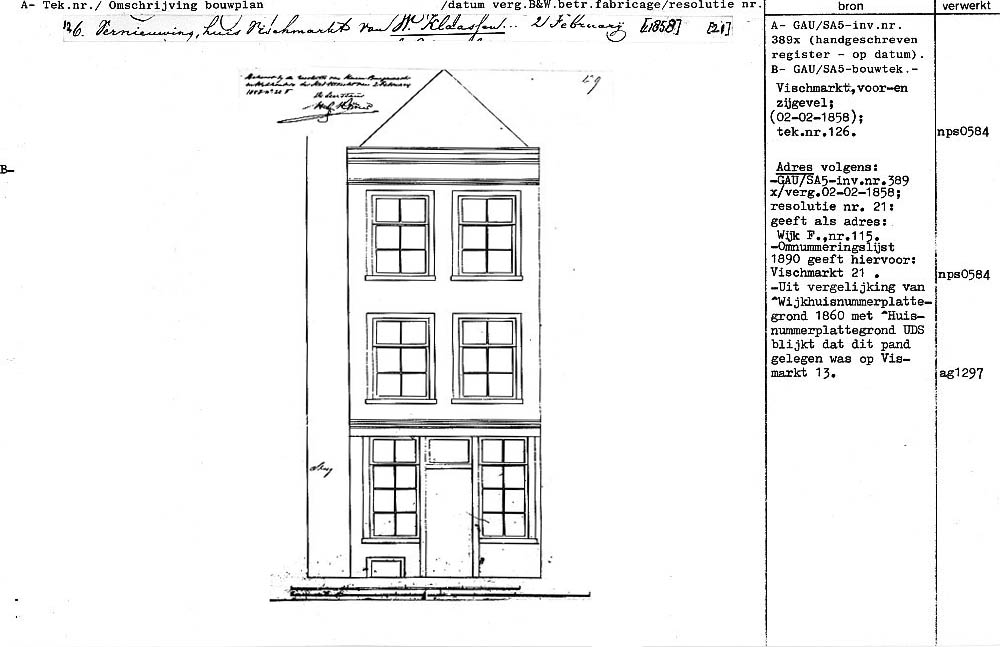 A- Tek.nr./ Omschrijving bouwplan /datum verg.B&W.betr.fabricage/resolutie nr. bron verwerkt
126. Vernieuwing, huis Vischmarkt van W. Klaassen... 2 Februarij [1858] [21]
A- GAU/SA5-inv.nr.
389x (handgeschreven
register - op datum).
B- GAU/SA5-bouwtek.-
Vischmarkt,voor-en
zijgevel;
(02-02-1858);
tek.nr.126. nps0584
B-
Adres volgens:
-GAU/SA5-inv.nr.389
x/verg.02-02-1858;
resolutie nr. 21:
geeft als adres:
Wijk F.,nr.115.
-Omnummeringslijst
1890 geeft hiervoor:
Vischmarkt 21 . nps0584
-Uit vergelijking van
^Wijkhuisnummerplatte-
grond 1860 met ^Huis-
nummerplattegrond UDS
blijkt dat dit pand
gelegen was op Vis-
markt 13. ag1297
De Secretaris